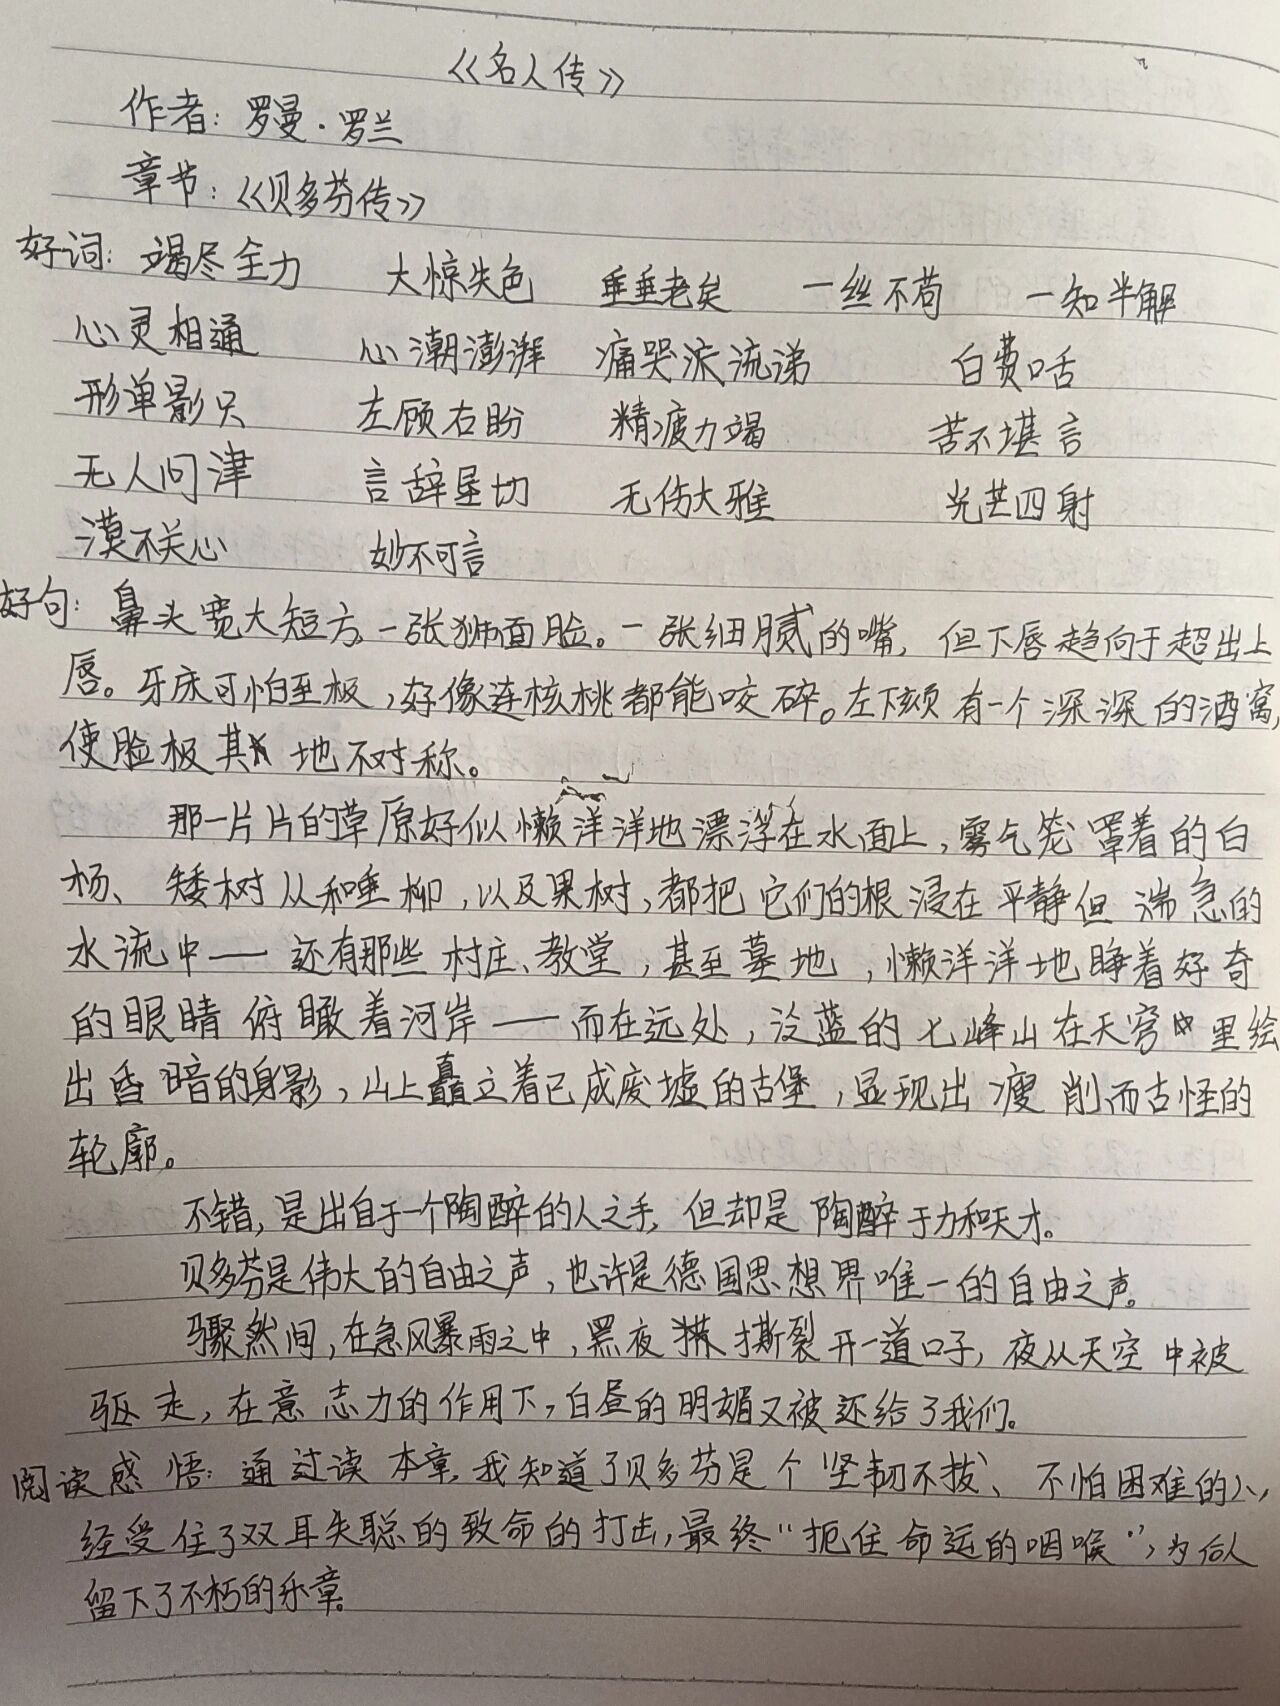 《名人传》
作者：罗曼·罗兰
章节：《贝多芬传》
好词：竭尽全力 大惊失色 垂垂老矣 一丝不苟 一知半解
心灵相通 心潮澎湃 痛哭流涕 白费口舌
形单影只 左顾右盼 精疲力竭 苦不堪言
无人问津 言辞 切 无伤大雅 光芒四射
漠不关心 妙不可言
好句：鼻头宽大短方，一张狮面脸。一张细腻的嘴，但下唇趋向于超出上
唇。牙床可怕至极，好像连核桃都能咬碎。左下颏有一个深深的酒窝，
使脸极其 地不对称。
那一片片的草原好似懒洋洋地漂浮在水面上，雾气笼罩着的白
杨、矮树丛和垂柳，以及果树，都把它们的根浸在平静但湍急的
水流中——还有那些村庄、教堂，甚至墓地，懒洋洋地睁着好奇
的眼睛俯瞰着河岸——而在远处，泛蓝的七峰山在天穹里绘
出昏暗的身影，山上矗立着已成废墟的古堡，显现出瘦削而古怪的
轮廓。
不错，是出自于一个陶醉的人之手，但却是陶醉于力和天才。
贝多芬是伟大的自由之声，也许是德国思想界唯一的自由之声。
骤然间，在急风暴雨之中，黑夜撕裂开一道口子，夜从天空中被
驱走，在意志力的作用下，白昼的明媚又被还给了我们。
阅读感悟：通过读本章，我知道了贝多芬是个坚韧不拔、不怕困难的人，
经受住了双耳失聪的致命的打击，最终“扼住命运的咽喉”，为后人
留下了不朽的乐章。